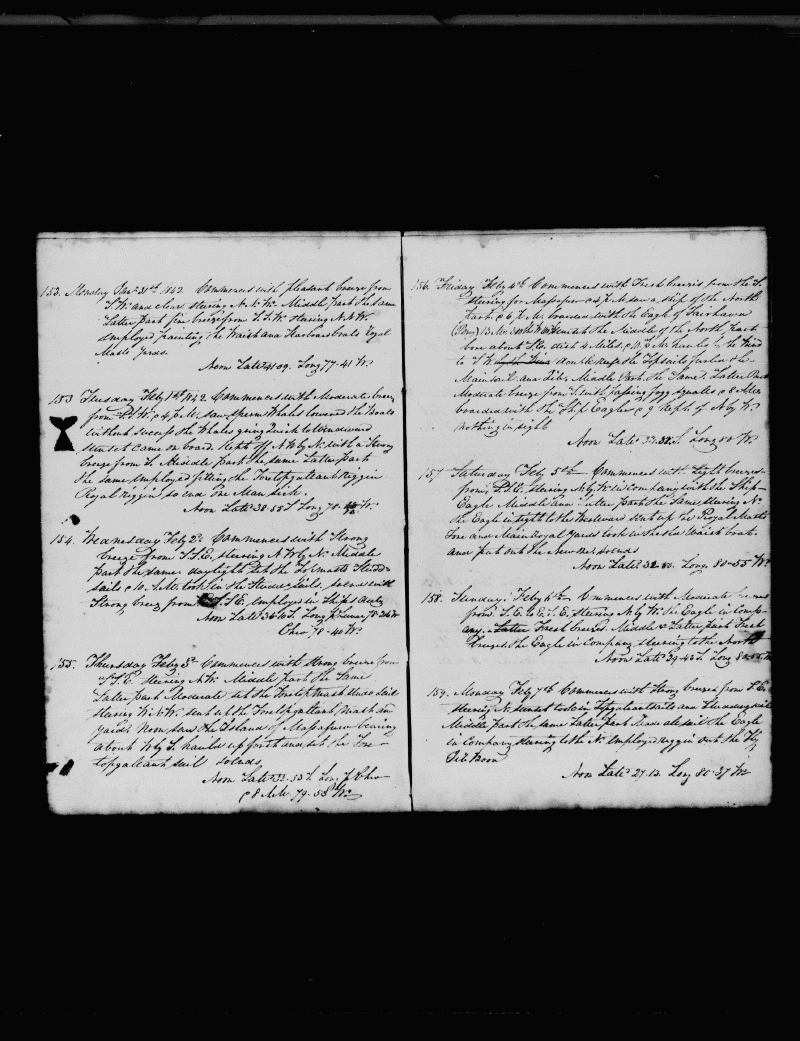 153. Monday Jan 31st 1842. Commences with pleasant breeze from
S.W. and clear steering N.N.W. Middle part the same
Latter part fine breeze from S.S.W. steering N.N.W.
Employed painting the Waist and Starboard boats Royal
Masts Yards.
Noon Latd 41-09. Long 77-41 W.
153 Tuesday Feby 1st 1842. Commences with Moderate breeze
from S.S.W. 4 P.M. saw Sperm Whales lowered the Boats
without success the Whales going quick to Windward
Sunset came on board. Kept off N.W by N. with a Strong
breeze from S. Middle part the same Latter part
the same Employed fitting the Foretopgallant Riggin
Royal Riggin so end One Man sick.
Noon Latd 38-55 S Long 78- W.
154. Wednesday Feby 2d Commences with Strong
breeze from S.S.E. steering N.W by N. Middle
part the same daylight set the Foremast Studd-
sails 10 A.M. took in the Studdsails. so end with
Strong breeze from S.S.E. Employed in Ships duty
Noon Latd 36- S. Long p Lunar 78-26 W
Chro 78-40 W.
155. Thursday Feby 3d Commences with strong breeze from
S.S.E. steering N.W. Middle part the Same
Latter part Moderate set the Foretopmast Studd sail
steering W.N.W. sent up the Foretopgallant Mast and
yards Noon saw the Island of Massafuro bearing
about W by S. hauled up forth and set the Fore-
topgallant sail so ends
Noon Latd 33-53 S. Long p Chro
8 A.M. 79-53 W.
156 Friday Feby 4th Commences with Fresh breezes from the S.
steering for Massafuro 4 P.M. saw a ship of the North
Part. 6 P.M. boarded with the Eagle of Fairhaven
13 Mo. the Middle of the North part
bore about S.E. dist 4 Miles 10 P.M. hauled by the Wind
to S.W. the Topsails furled the
Mainsail and Jib. Middle Part the Same. Latter Part
Moderate breeze from S. with passing fogg squalls 8 A.M.
boarded with the Ship Eagle 9 Kept of N by W.
Nothing in sight
Noon Latd 33- S Long 80 W.
157 Saturday Feby 5th Commences with Light breezes
from S.S.E. steering N by W. in Company with the Ship
Eagle Middle and Latter part the Same, steering N.
the Eagle in sight to the Westward sent up the Royal Masts
Fore and Main Royal Yards took in the old Waist boat.
and put out the New one so ends
Noon Latd 32- Long. 80-55 W.
158. Sunday. Feby 6th Commences with Moderate breezes
from S.E. to E.S.E. steering N by W. the Eagle in Comp-
any. Latter Fresh breezes Middle & Latter part Fresh
Breezes the Eagle in Company steering to the North
Noon Latd 29-43 S. Long 80- W
159. Monday Feby 7th Commences with Strong breezes from S.E.
steering N. Sunset took in Topgallantsails and
Middle part the same Latter part the Eagle
in Company steering to the N. Employed Riggin out the Fly
Jib Boom
Noon Latd 27-13. Long 80-37 W